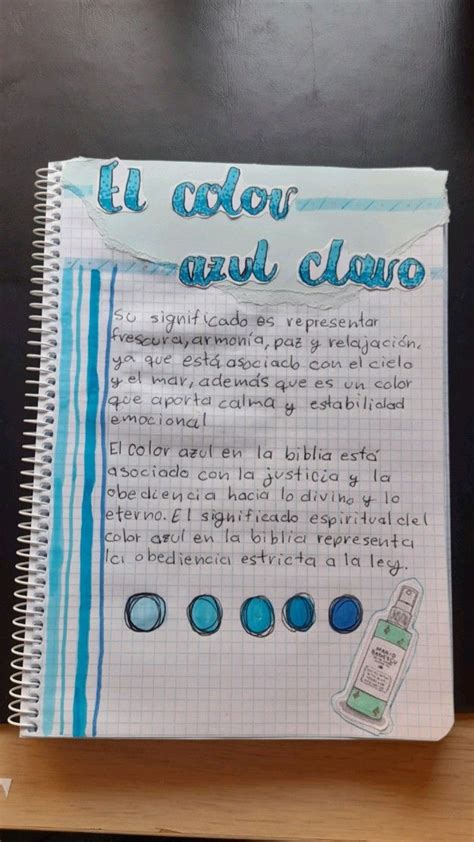 El color
azul claro
Su significado es representar
frescura, armonía, paz y relajación,
ya que está asociado con el cielo
y el mar, además que es un color
que aporta calma y estabilidad
emocional
El color azul en la biblia está
asociado con la justicia y la
obediencia hacia lo divino y lo
eterno. El significado espiritual del
color azul en la biblia representa
la obediencia estricta a la ley.
MARIO
BADESCU